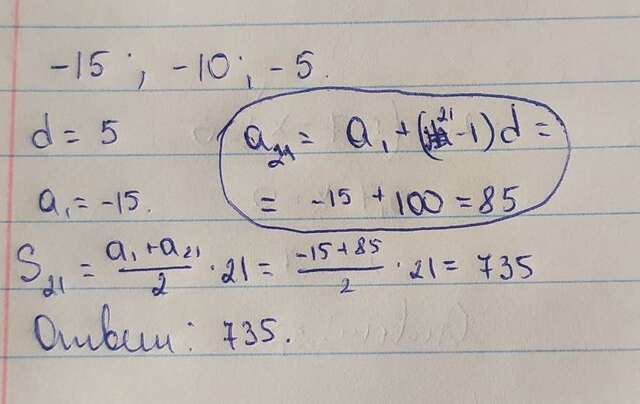 -15; -10; -5.
d = 5
a₂₁ = a₁ + (21-1)d =
= -15 + 100 = 85
a₁ = -15.
S₂₁ = (a₁ + a₂₁)/2 · 21 = (-15 + 85)/2 · 21 = 735
Ответ: 735.